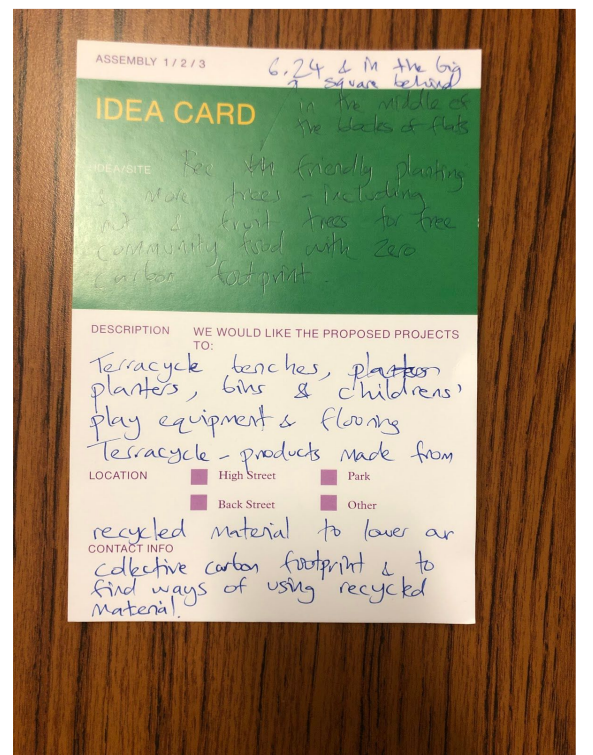 ASSEMBLY 1 / 2 / 3
6.24 & in the big
square behind
in the middle of
the blocks of flats
IDEA CARD
IDEA/SITE
friendly planting
& More trees - including
nut & fruit trees for free
community food with zero
carbon footprint.
DESCRIPTION WE WOULD LIKE THE PROPOSED PROJECTS
TO:
Terracycle benches,
planters, bins & childrens'
play equipment & flooring
Terracycle - products made from
LOCATION High Street Park
Back Street Other
recycled material to lower our
CONTACT INFO
collective carbon footprint & to
find ways of using recycled
Material.